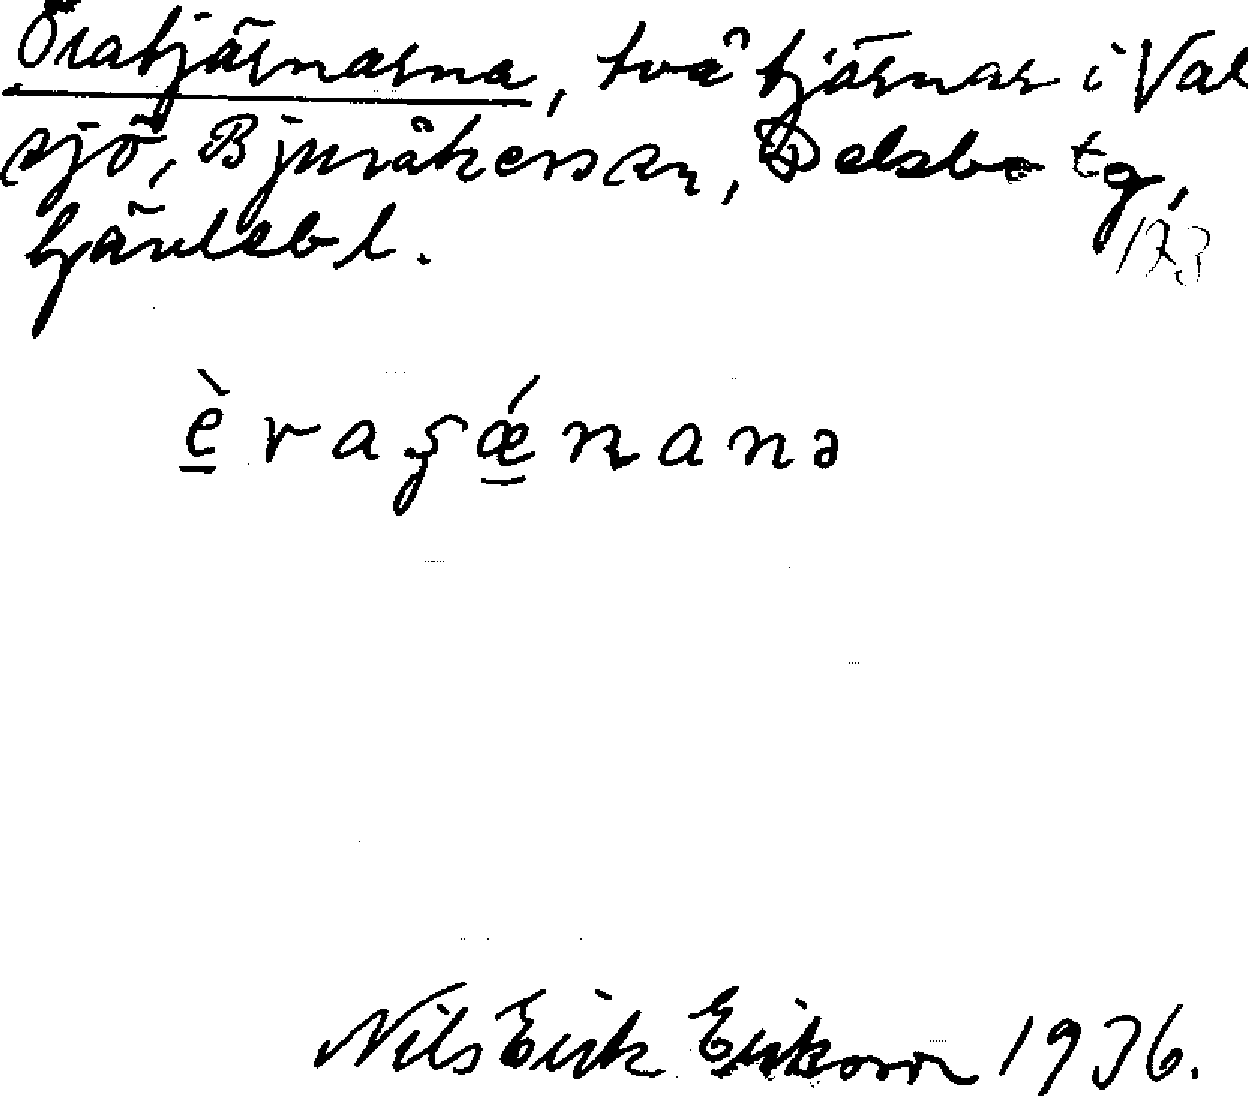 Öratjärnarna, två tjärnar i Val
sjö, Bjuråkers sn, Delsbo tg,
Gävlebl.
173
èraʂǽnanə
Nils Erik Eriksson 1936.